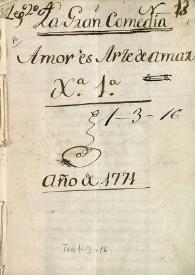 Leg.º 2.º
La Gran Comedia
Amor es Arte de amar
X.ª 1.ª
1-3-16
Año de 1771
Tea 1-3-16